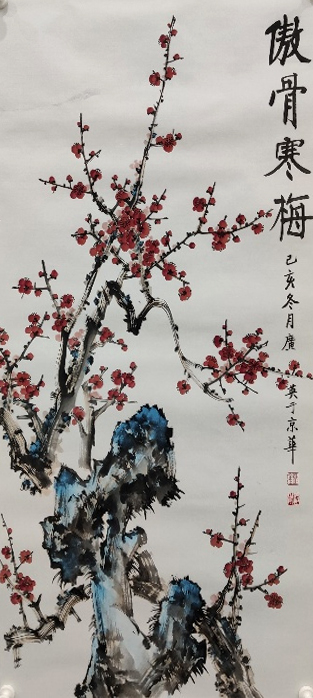 傲骨寒梅
己亥冬月廣
英于京華